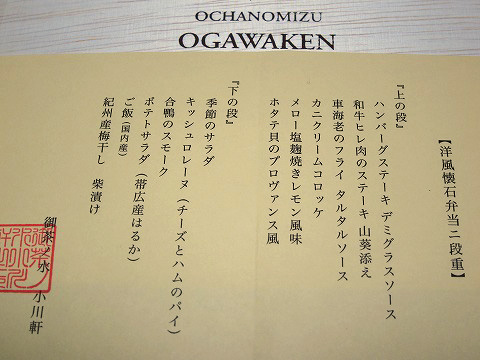 OCHANOMIZU
OGAWAKEN
【洋風懐石弁当二段重】
『上の段』
ハンバーグステーキ デミグラスソース
和牛ヒレ肉のステーキ 山葵添え
車海老のフライ タルタルソース
カニクリームコロッケ
メロー塩麹焼きレモン風味
ホタテ貝のプロヴァンス風
『下の段』
季節のサラダ
キッシュロレーヌ（チーズとハムのパイ）
合鴨のスモーク
ポテトサラダ（帯広産はるか）
ご飯（国内産）
紀州産梅干し 柴漬け
御茶ノ水 小川軒